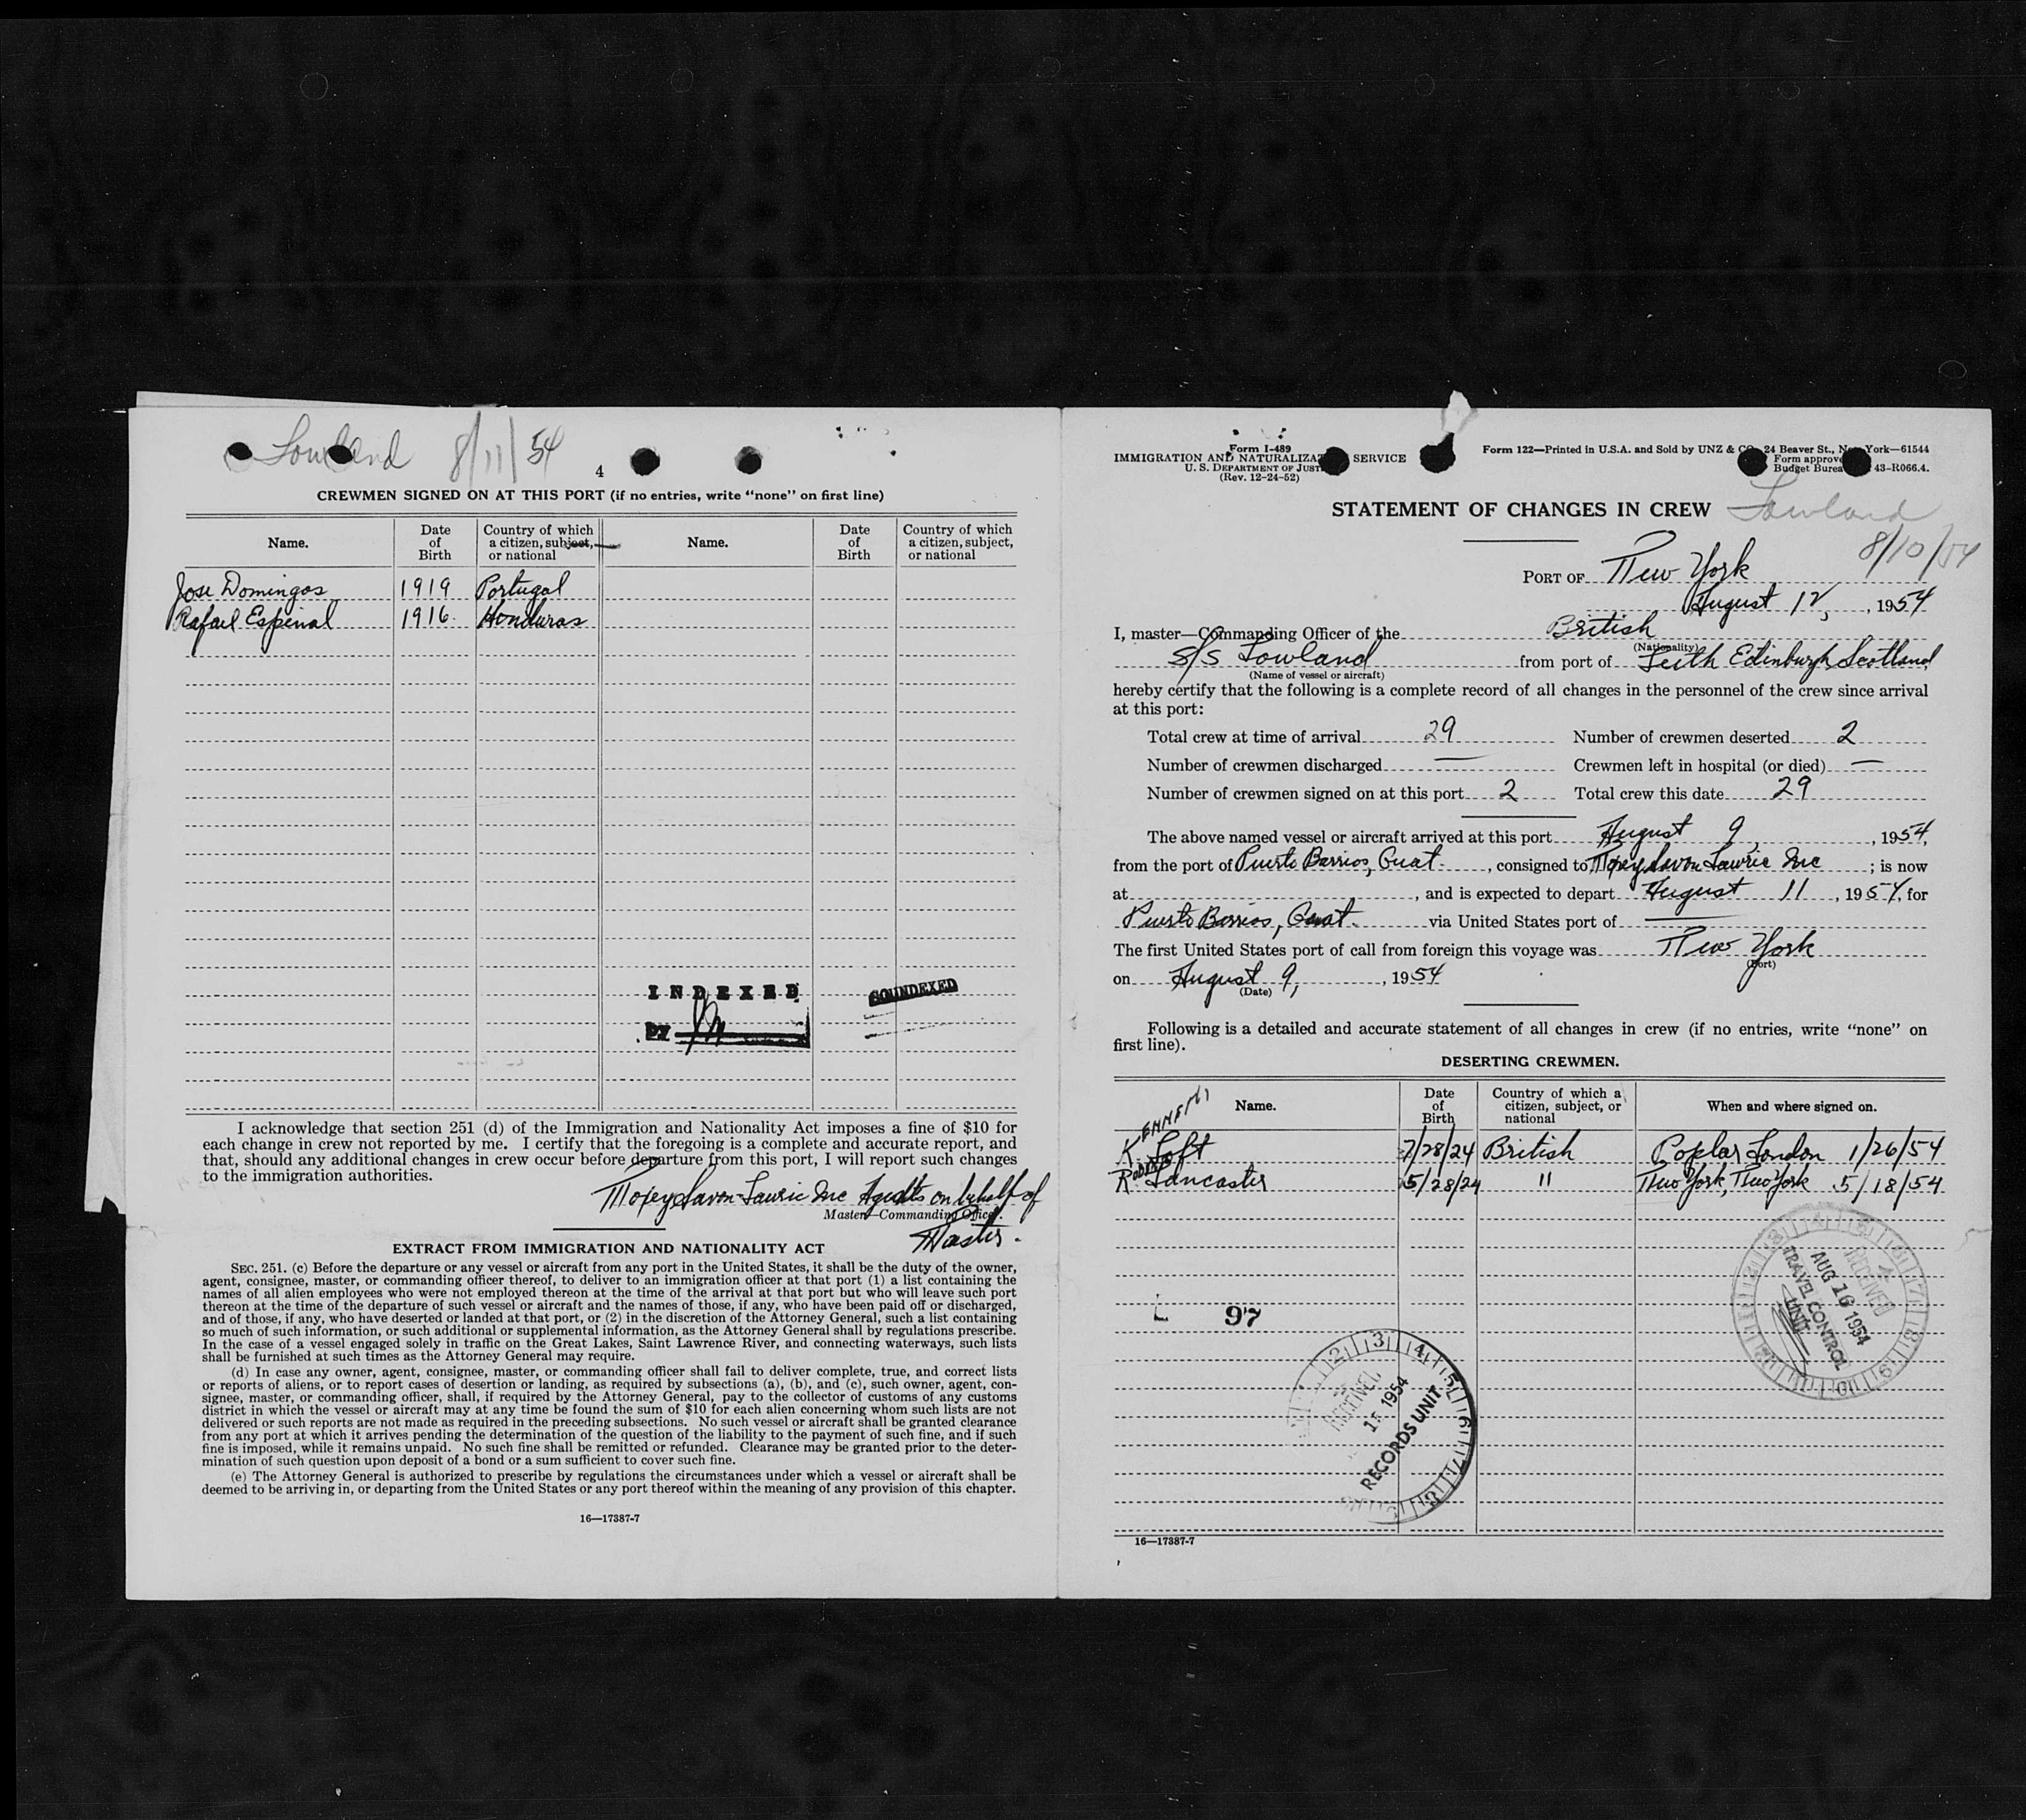 Lowland 8/11/54
4
CREWMEN SIGNED ON AT THIS PORT (if no entries, write “none” on first line)
Name. Date of Birth Country of which a citizen, subject, or national Name. Date of Birth Country of which a citizen, subject, or national
Jose Domingos 1919 Portugal
Rafael Espinal 1916 Honduras
INDEXED
BY
SOUNDEXED
I acknowledge that section 251 (d) of the Immigration and Nationality Act imposes a fine of $10 for
each change in crew not reported by me. I certify that the foregoing is a complete and accurate report, and
that, should any additional changes in crew occur before departure from this port, I will report such changes
to the immigration authorities.
Moxey Savon-Lawrie Inc Agents on behalf of
Master—Commanding Officer.
Master.
EXTRACT FROM IMMIGRATION AND NATIONALITY ACT
SEC. 251. (c) Before the departure or any vessel or aircraft from any port in the United States, it shall be the duty of the owner,
agent, consignee, master, or commanding officer thereof, to deliver to an immigration officer at that port (1) a list containing the
names of all alien employees who were not employed thereon at the time of the arrival at that port but who will leave such port
thereon at the time of the departure of such vessel or aircraft and the names of those, if any, who have been paid off or discharged,
and of those, if any, who have deserted or landed at that port, or (2) in the discretion of the Attorney General, such a list containing
so much of such information, or such additional or supplemental information, as the Attorney General shall by regulations prescribe.
In the case of a vessel engaged solely in traffic on the Great Lakes, Saint Lawrence River, and connecting waterways, such lists
shall be furnished at such times as the Attorney General may require.
(d) In case any owner, agent, consignee, master, or commanding officer shall fail to deliver complete, true, and correct lists
or reports of aliens, or to report cases of desertion or landing, as required by subsections (a), (b), and (c), such owner, agent, con-
signee, master, or commanding officer, shall, if required by the Attorney General, pay to the collector of customs of any customs
district in which the vessel or aircraft may at any time be found the sum of $10 for each alien concerning whom such lists are not
delivered or such reports are not made as required in the preceding subsections. No such vessel or aircraft shall be granted clearance
from any port at which it arrives pending the determination of the question of the liability to the payment of such fine, and if such
fine is imposed, while it remains unpaid. No such fine shall be remitted or refunded. Clearance may be granted prior to the deter-
mination of such question upon deposit of a bond or a sum sufficient to cover such fine.
(e) The Attorney General is authorized to prescribe by regulations the circumstances under which a vessel or aircraft shall be
deemed to be arriving in, or departing from the United States or any port thereof within the meaning of any provision of this chapter.
16—17387-7
Form I-489
IMMIGRATION AND NATURALIZA SERVICE
U. S. DEPARTMENT OF JUST
(Rev. 12-24-52)
Form 122—Printed in U.S.A. and Sold by UNZ & CO 24 Beaver St., Ne York—61544
Form approve
Budget Burea 43-R066.4.
STATEMENT OF CHANGES IN CREW Lowland
8/10/54
PORT OF New York
August 12, , 1954
I, master—Commanding Officer of the British
(Nationality)
S/S Lowland from port of Leith Edinburgh, Scotland
(Name of vessel or aircraft)
hereby certify that the following is a complete record of all changes in the personnel of the crew since arrival
at this port:
Total crew at time of arrival 29 Number of crewmen deserted 2
Number of crewmen discharged — Crewmen left in hospital (or died) —
Number of crewmen signed on at this port 2 Total crew this date 29
The above named vessel or aircraft arrived at this port August 9, , 1954,
from the port of Puerto Barrios, Guat. , consigned to Moxey Savon Lawrie Inc ; is now
at , and is expected to depart August 11 , 1954, for
Puerto Barrios, Guat. via United States port of —
The first United States port of call from foreign this voyage was New York
(Port)
on August 9, , 1954
(Date)
Following is a detailed and accurate statement of all changes in crew (if no entries, write “none” on
first line).
DESERTING CREWMEN.
Name. Date of Birth Country of which a citizen, subject, or national When and where signed on.
KENNETH
K. Loft 7/28/24 British Poplar London 1/26/54
R. Lancaster 5/28/24 " New York, New York 5/18/54
97
RECEIVED
AUG 16 1954
TRAVEL CONTROL
UNIT
RECEIVED
1954
RECORDS UNIT
16—17387-7